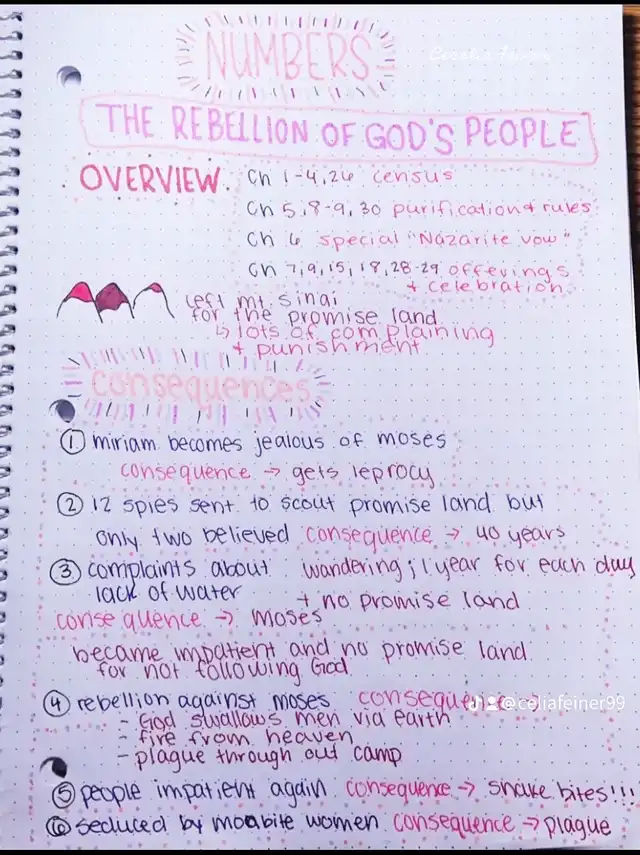 NUMBERS
THE REBELLION OF GOD'S PEOPLE
OVERVIEW
Ch 1-4, 26 census
Ch 5, 8-9, 30 purification + rules
Ch 6 special "Nazarite vow"
Ch 7, 9, 15, 18, 28-29 offerings
+ celebration
left mt. sinai
for the promise land
↳ lots of complaining
+ punishment
consequences
① miriam becomes jealous of moses
consequence → gets leprocy
② 12 spies sent to scout promise land but
only two believed consequence → 40 years
wandering; 1 year for each day
+ no promise land
③ complaints about
lack of water
consequence → moses
became impatient and no promise land
for not following God.
④ rebellion against moses conseque
- God swallows men via earth
- fire from heaven
- plague through out camp
⑤ people impatient again consequence → snake bites!!!
⑥ seduced by moabite women consequence → plague
@celiafeiner99